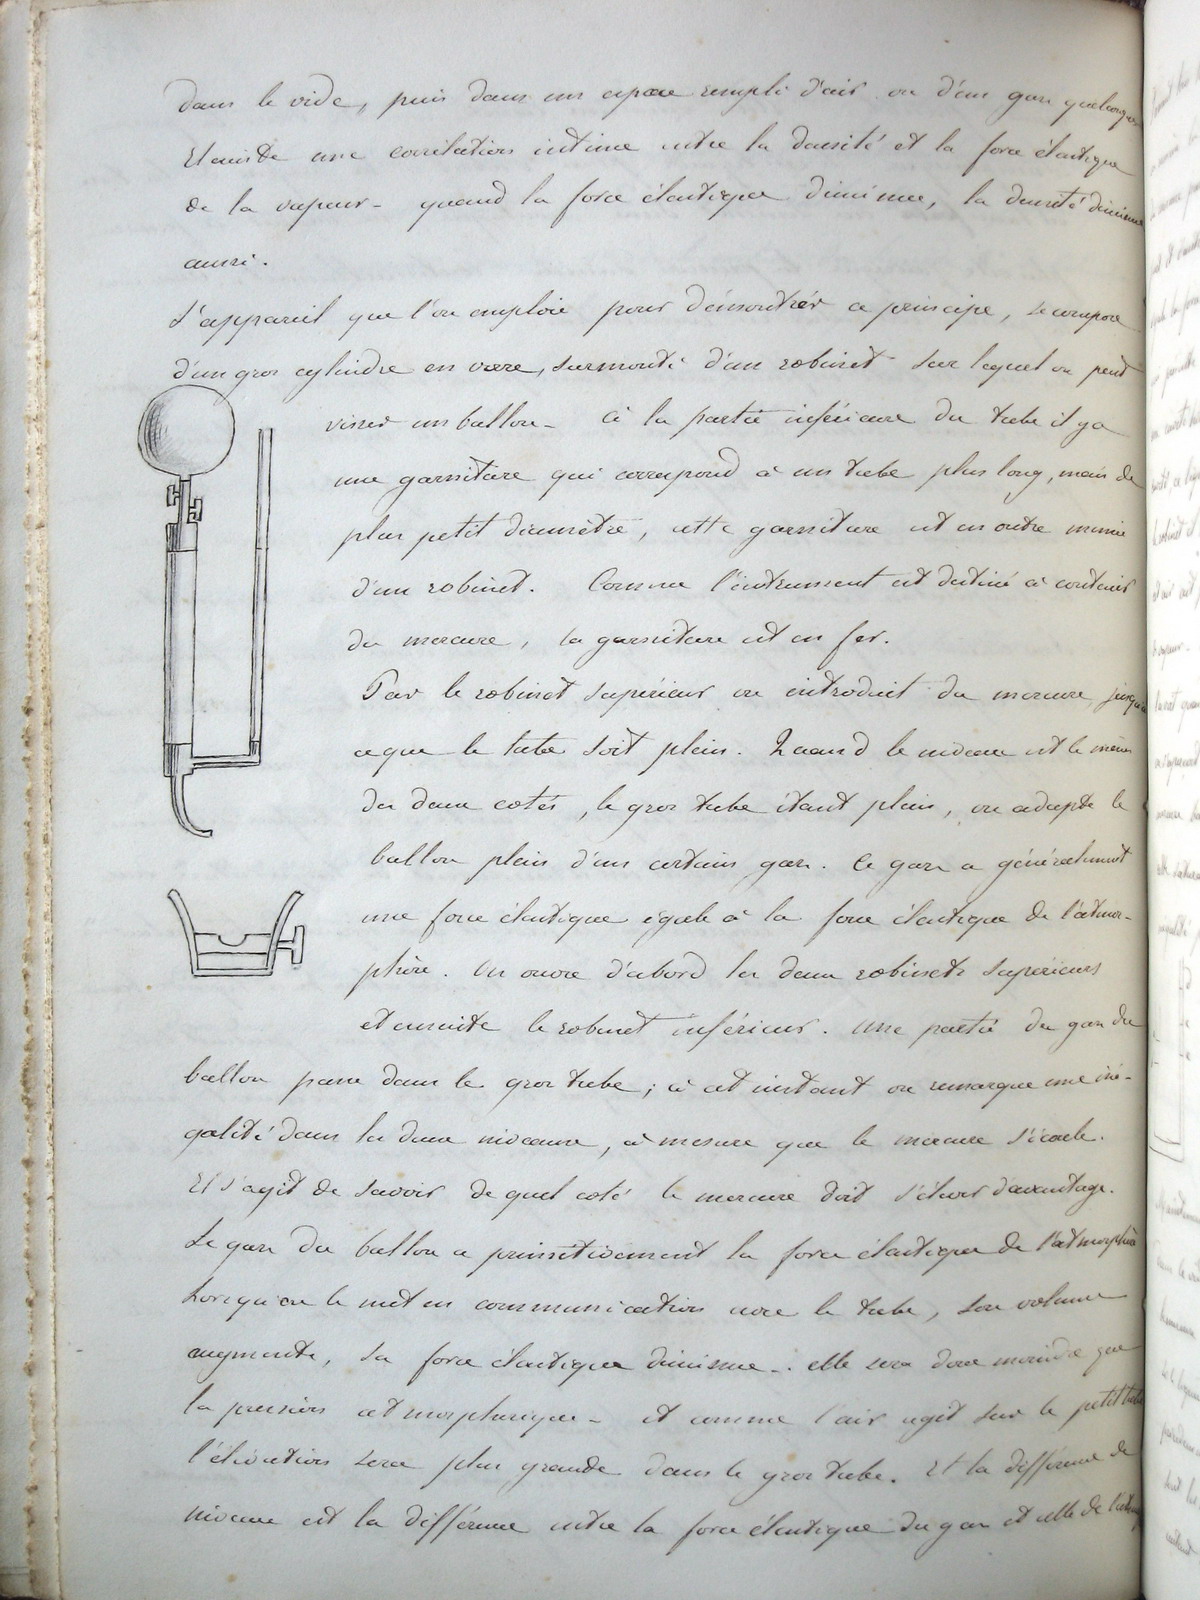 dans le vide, puis dans un espace rempli d'air ou d'un gaz quelconque
Il existe une corrélation intime entre la densité et la force élastique
de la vapeur - quand la force élastique diminue, la densité diminue
aussi.
L'appareil que l'on emploie pour démontrer ce principe, se compose
d'un gros cylindre en verre, surmonté d'un robinet sur lequel on peut
visser un ballon - à la partie inférieure du tube il y a
une garniture qui correspond à un tube plus long, mais de
plus petit diamètre, cette garniture est en outre munie
d'un robinet. Comme l'instrument est destiné à contenir
du mercure, la garniture est en fer.
Par le robinet supérieur on introduit du mercure, jusqu'à
ce que le tube soit plein. Quand le niveau est le même
des deux cotés, le gros tube étant plein, on adapte le
ballon plein d'un certain gaz. Ce gaz a généralement
une force élastique égale à la force élastique de l'atmos-
phère. On ouvre d'abord les deux robinets supérieurs
et ensuite le robinet inférieur. Une partie du gaz du
ballon passe dans le gros tube ; à cet instant on remarque une iné-
galité dans les deux niveaux, à mesure que le mercure s'écoule.
Il s'agit de savoir de quel coté le mercure doit s'élever davantage.
Le gaz du ballon a primitivement la force élastique de l'atmosphère
Lorsqu'on le met en communication avec le tube, son volume
augmente, sa force élastique diminue - elle sera donc moindre que
la pression atmosphérique - et comme l'air agit sur le petit tube
l'élévation sera plus grande dans le gros tube. Et la différence de
niveau est la différence entre la force élastique du gaz et celle de